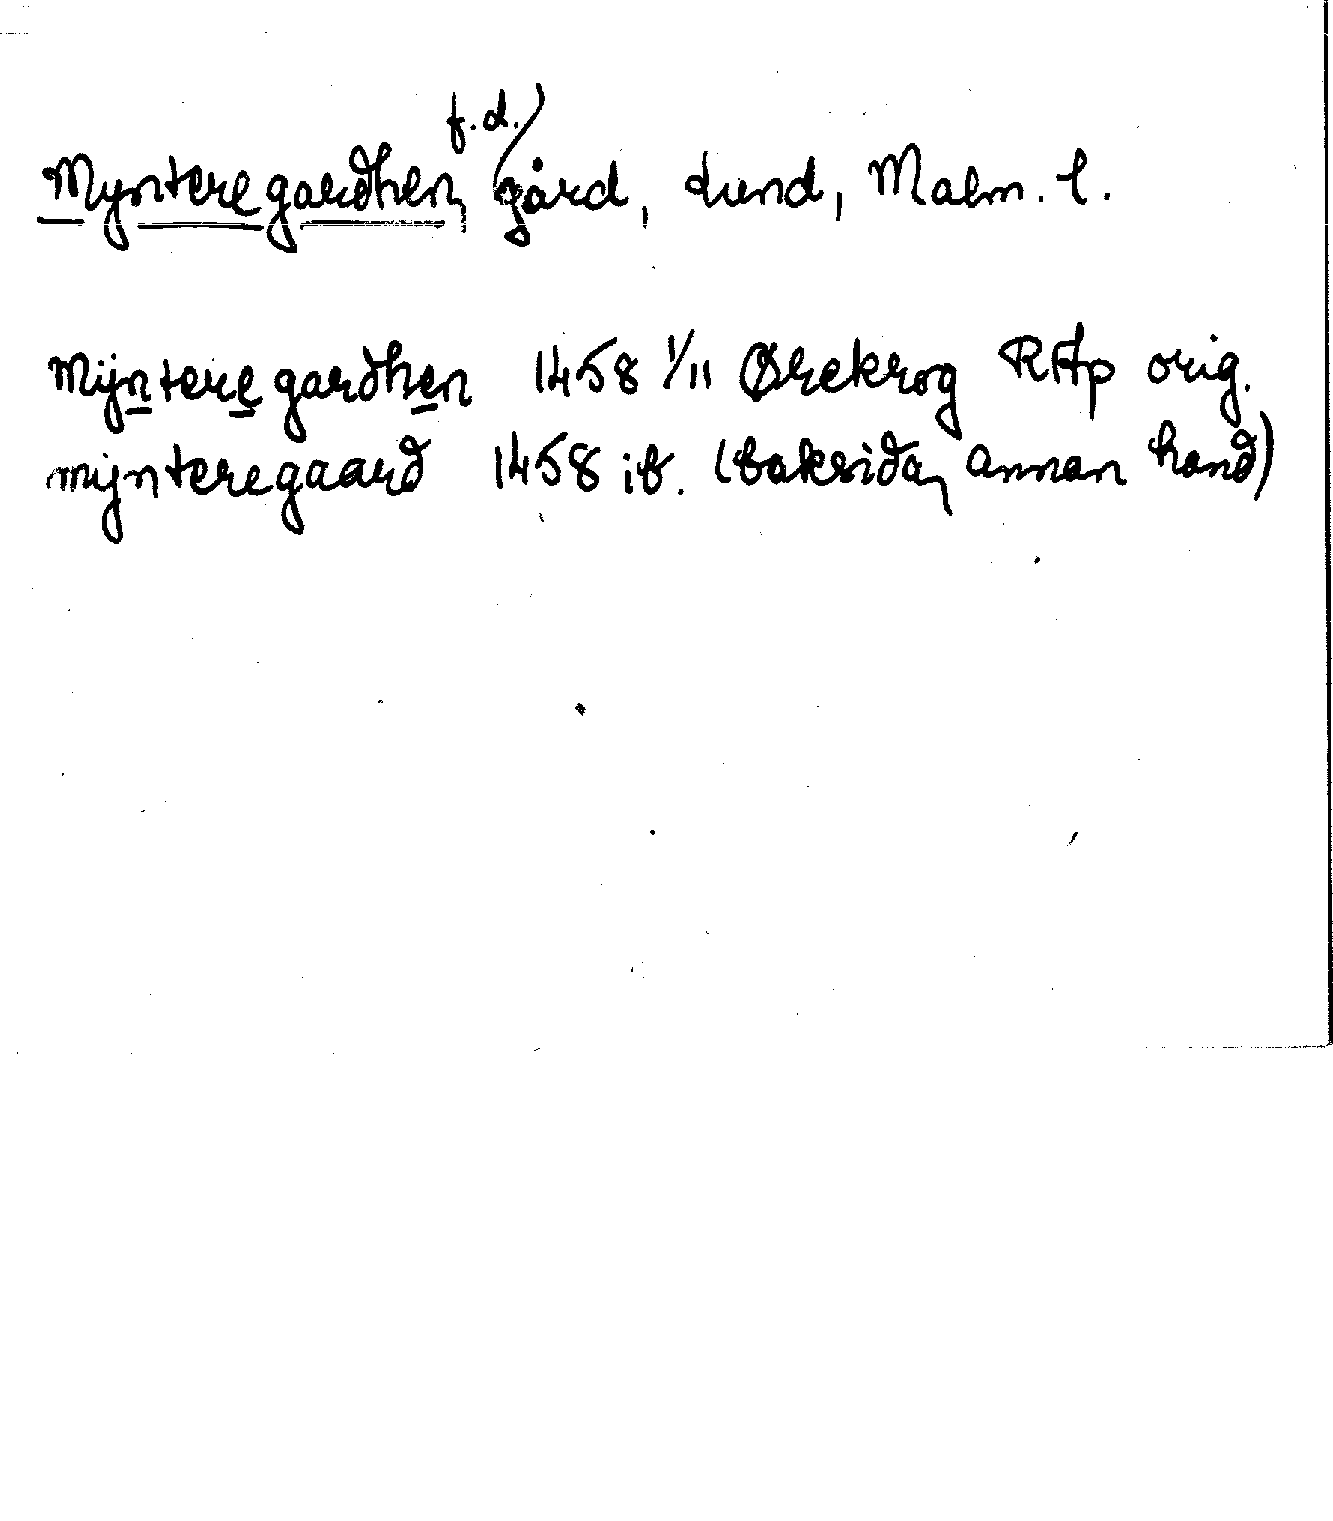 Myntere gardhen, f.d. gård, Lund, Malm. l.
Mijntere gardhen 1458 1/11 Ørekrog RAp orig.
mijnteregaard 1458 ib. (baksida, annan hand)